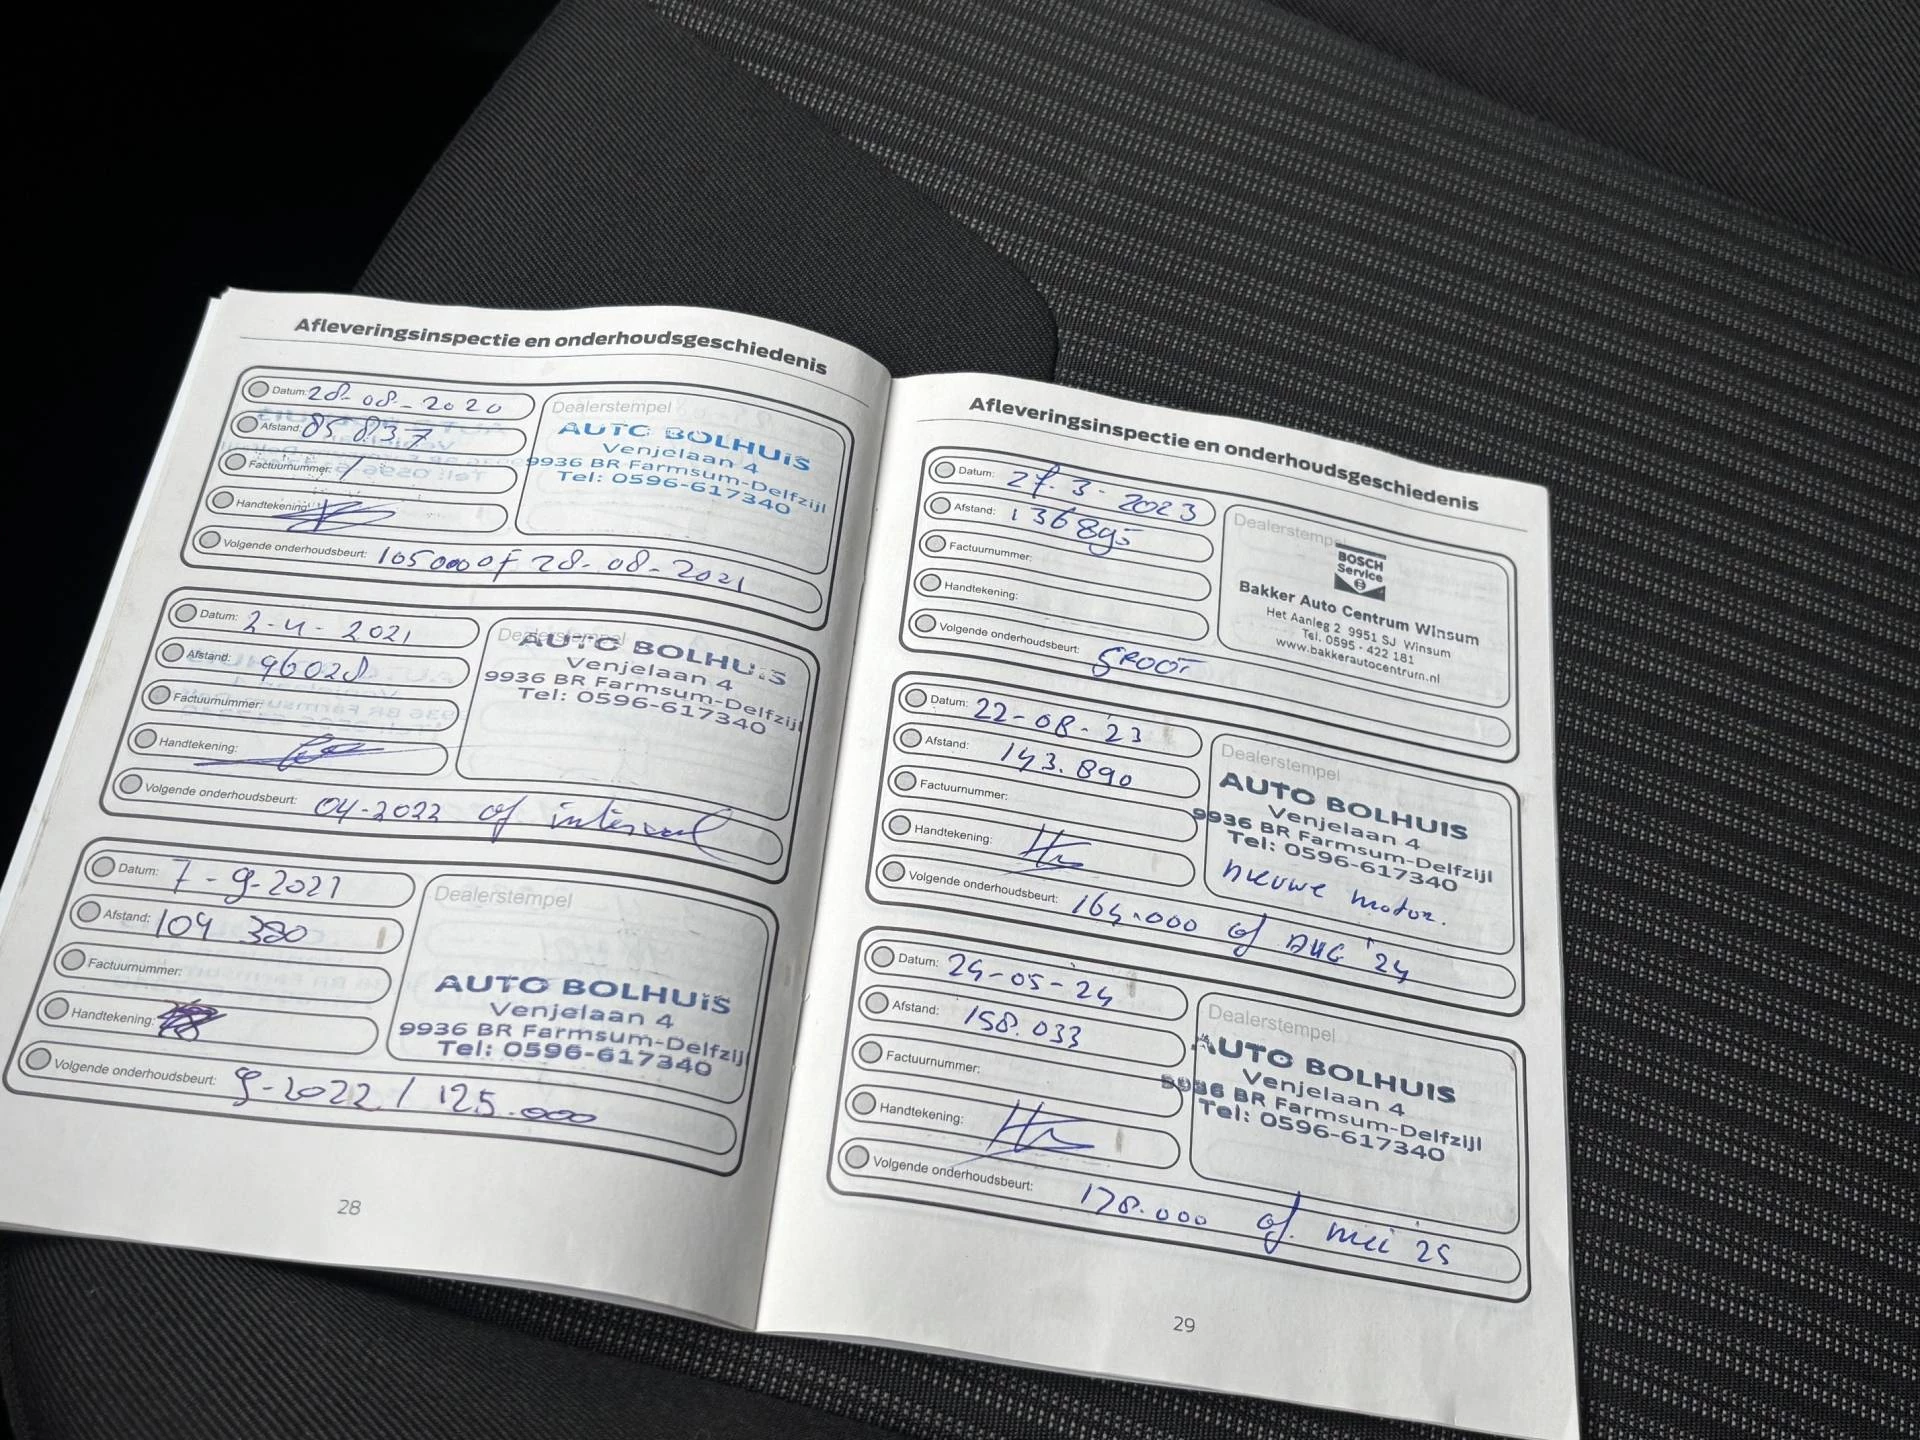 Afleveringsinspectie en onderhoudsgeschiedenis
Datum: 28-08-2020
Afstand: 85837
Factuurnummer: /
Handtekening:
Dealerstempel
AUTO BOLHUiS
Venjelaan 4
9936 BR Farmsum-Delfzijl
Tel: 0596-617340
Volgende onderhoudsbeurt: 105000 of 28-08-2021
Datum: 2-4-2021
Afstand: 96028
Factuurnummer:
Handtekening:
Dealerstempel
AUTO BOLHUiS
Venjelaan 4
9936 BR Farmsum-Delfzijl
Tel: 0596-617340
Volgende onderhoudsbeurt: 04-2022 of interval
Datum: 7-9-2021
Afstand: 104 380
Factuurnummer:
Handtekening:
Dealerstempel
AUTO BOLHUiS
Venjelaan 4
9936 BR Farmsum-Delfzijl
Tel: 0596-617340
Volgende onderhoudsbeurt: 9-2022 / 125.000
28
Afleveringsinspectie en onderhoudsgeschiedenis
Datum: 27-3-2023
Afstand: 136895
Factuurnummer:
Handtekening:
Dealerstempel
BOSCH
Service
Bakker Auto Centrum Winsum
Het Aanleg 2 9951 SJ Winsum
Tel. 0595 - 422 181
www.bakkerautocentrum.nl
Volgende onderhoudsbeurt: GROOT
Datum: 22-08-'23
Afstand: 143.890
Factuurnummer:
Handtekening:
Dealerstempel
AUTO BOLHUIS
Venjelaan 4
9936 BR Farmsum-Delfzijl
Tel: 0596-617340
nieuwe motor.
Volgende onderhoudsbeurt: 164.000 of AUG '24
Datum: 24-05-'24
Afstand: 158.033
Factuurnummer:
Handtekening:
Dealerstempel
AUTO BOLHUIS
Venjelaan 4
9936 BR Farmsum-Delfzijl
Tel: 0596-617340
Volgende onderhoudsbeurt: 178.000 of mei '25
29